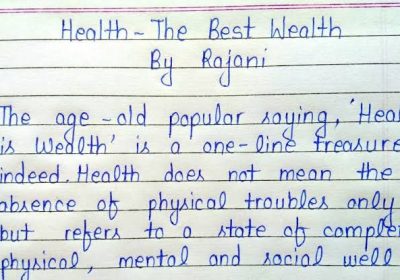 Health - The Best Wealth
By Rajani
The age-old popular saying, 'Hea
is Wealth' is a one-line treasure
indeed. Health does not mean the
absence of physical troubles only
but refers to a state of comple
physical, mental and social well